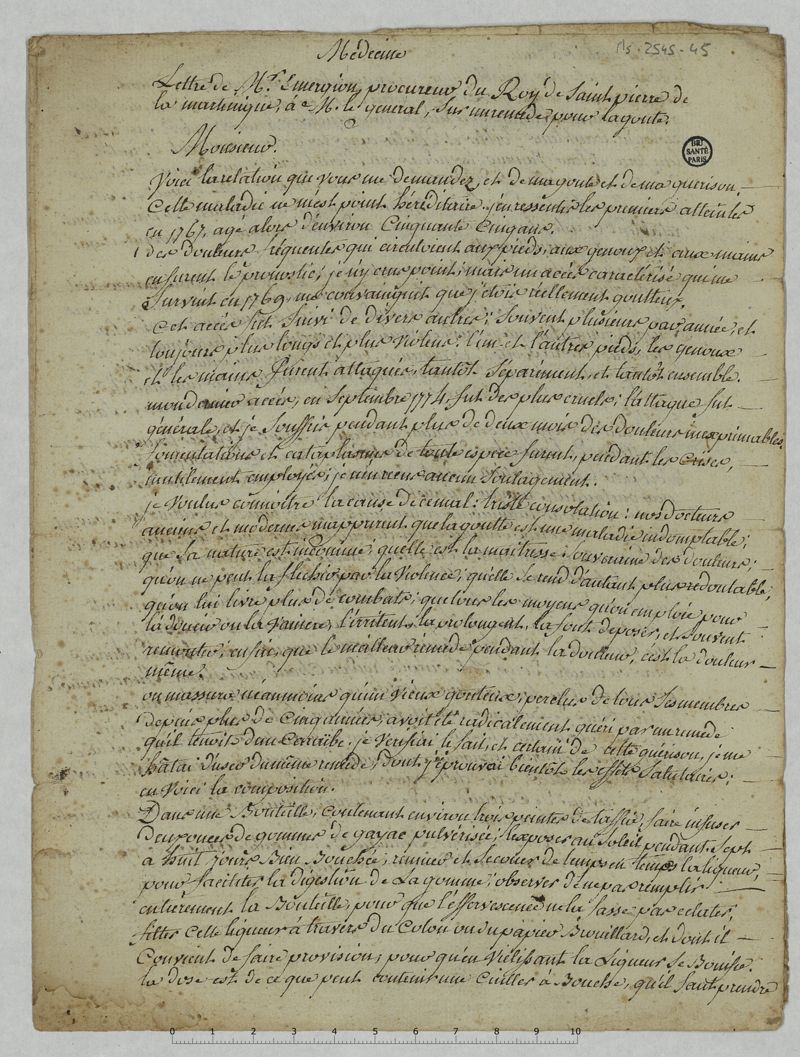 Médecine
Ms. 2545-45
Lettre de Mr. Emerigon, procureur du Roy de Saint pierre de
la martinique, à Mr. le général, sur un remede pour la goute.
BIU
SANTÉ
PARIS
Monsieur.
Voici la relation que vous me demandez, et de ma goute et de ma guerison.
Cette maladie ne m'est point héréditaire. j'en ressentis les premiers atteintes
en 1767, agé alors d'environ Cinquante Cinq ans.
des douleurs fréquentes qui circuloient aux pieds, aux genoux et aux mains
en furent le pronostic; je n'y crus point; mais un accès caractérisé qui me
Survint en 1769, me convainquit que j'etois réellement goutteux.
Cet accès fut Suivi de divers autres; Souvent plusieurs par année, et
toujours plus longs et plus violens: l'un et l'autres pieds, les genoux
et les mains furent attaqués, tantôt Séparément, et tantôt ensemble.
mon dernier accès, en Septembre 1774, fut des plus cruels; l'attaque fut
générale, et je Souffris pendant plus de deux mois des douleurs inexprimables.
fomentations et cataplasmes de toute espece furent, pendant les crises,
inutilement employés; je n'en reçus aucun Soulagement.
je Voulus connoitre la cause de ce mal: triste consolation: nos docteurs
anciens et modernes m'apprirent que la goutte est une maladie indomptable;
que Sa nature est inconnue; qu'elle est la maitresse Souveraine des douleurs;
qu'on ne peut la fléchir par la Violence; qu'elle Se rend d'autant plus redoutable,
qu'on lui livre plus de combats; que tous les moyens qu'on emploie pour
l'adoucir ou la Vaincre, l'irritent, la prolongent, la font deposer, et Souvent
remonter; enfin, que le meilleur remede pendant la douleur, c'est la douleur
même.
on m'assura néanmoins qu'un Vieux goutteux, perclus de tous Ses membres
depuis plus de Cinq années, avoit été radicalement guéri par un remede
qu'il tenoit d'un Caraïbe. je Vérifiai le fait, et certain de cette guérison, je me
hatai d'user du même remede, dont j'éprouvai bientôt les effets Salutaires;
en Voici la composition.
Dans une Bouteille, contenant environ trois pintes de taffia, faire infuser
deux onces de gomme de gayac pulverisée; l'exposer au Soleil pendant Sept
à huit jours Bien Bouchée; remuer et Secouer de temps en temps la liqueur,
pour faciliter la digestion de La gomme; observer de ne pas remplir
entierement la Bouteille, pour que l'effervescence ne la fasse pas eclater;
filter Cette liqueur à travers du Coton ou du papier Brouillard, et dont il
Convient de faire provision, pour qu'en vieillissant la Liqueur Se Bonifie.
la dose est de ce que peut contenir une Cuiller à Bouche, qu'il faut prendre
0 1 2 3 4 5 6 7 8 9 10